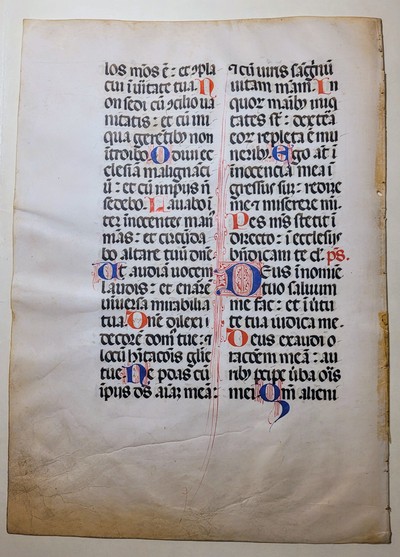 los mōs ē : et cpla
cui i ūitate tua. N
on sedi cū ꝯcilio va
nitatis : et cū ini
qua gerētibꝫ non
itroibo. Odiui ec
clesiā malignāti
ū : et cū impiis ñ
sedebo. Lauabo i
ter inocentes man⁹
mās : et circūda
bo altare tuū dn̄e.
Ut audiā uocem
laudis : et enarē
uniuersa mirabilia
tua. Dn̄e dilexi
decorē dom⁹ tue : ⁊
locū hītacōis glīe
tue. Ne pdas cū
ipiis ds aīaꝫ meā :
⁊ cū uiris sāgīnū
uitam mām. In
quor māibꝫ iniq
tates st̄ : dextēa
eoꝝ repleta ē mu
neribꝫ. Ego at̄ i
inocencia mea i
gressus suꝫ : redīe
me ⁊ miserere mī.
Pes m̄s stetit i
directo : i ecclesiis
bn̄dicam te dē. ps.
Deus i noīe
tuo saluum
me fac : et i ūtu
te tua iudica me.
Deus exaudi o
racōem meā : au
ribꝫ pcipe ūba oris
mei. Qm̄ alieni